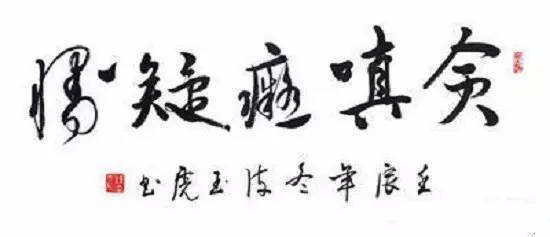 贪嗔癡疑慢
壬辰年冬玉虎书